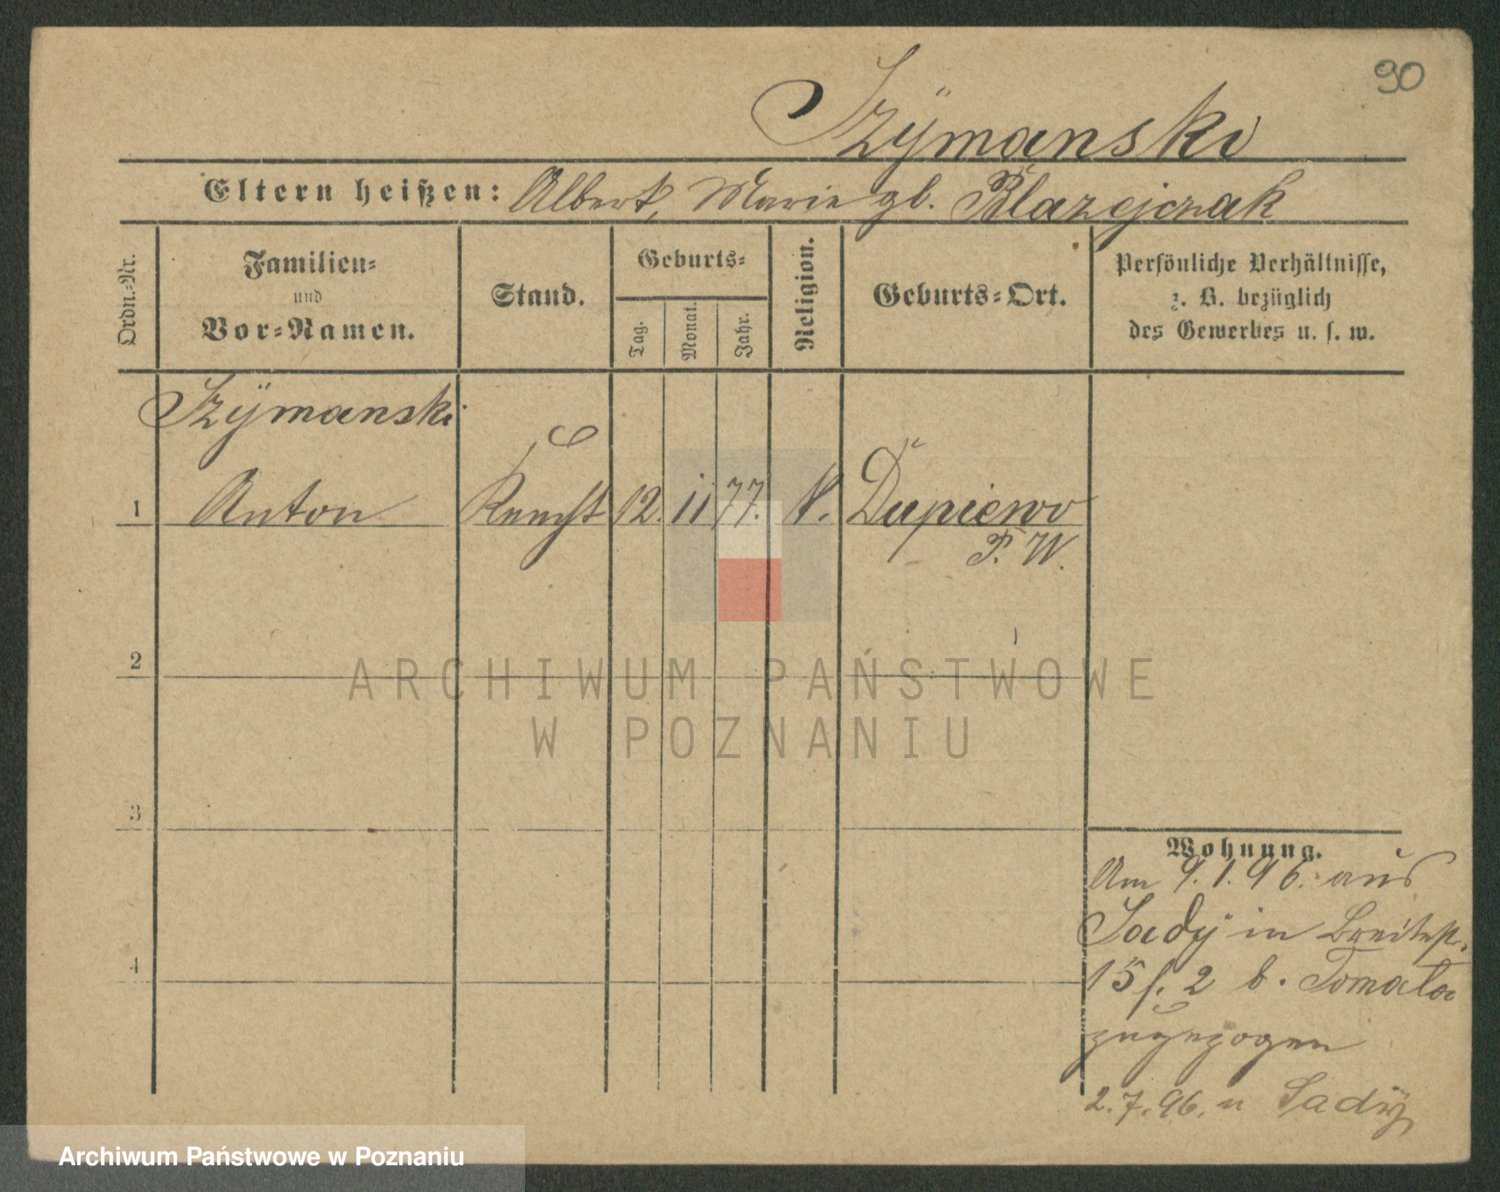 90
Szÿmanski
Eltern heißen: Albert, Marie gb. Blazejczak
Ordn.-Nr.
Familien-
und
Vor-Namen.
Stand.
Geburts-
Tag.
Monat.
Jahr.
Religion.
Geburts-Ort.
Persönliche Verhältnisse,
z. B. bezüglich
des Gewerbes u. s. w.
Szÿmanski
1 Anton Knecht 12. 11 77. K. Dupiewo
P. W.
2
ARCHIWUM PAŃSTWOWE
W POZNANIU
3
Wohnung.
Am 9.1.96. aus
Sadÿ in Breitest.
4
15 f. 2 b. Tomala
zugezogen
2.7.96. n Sadÿ
Archiwum Państwowe w Poznaniu